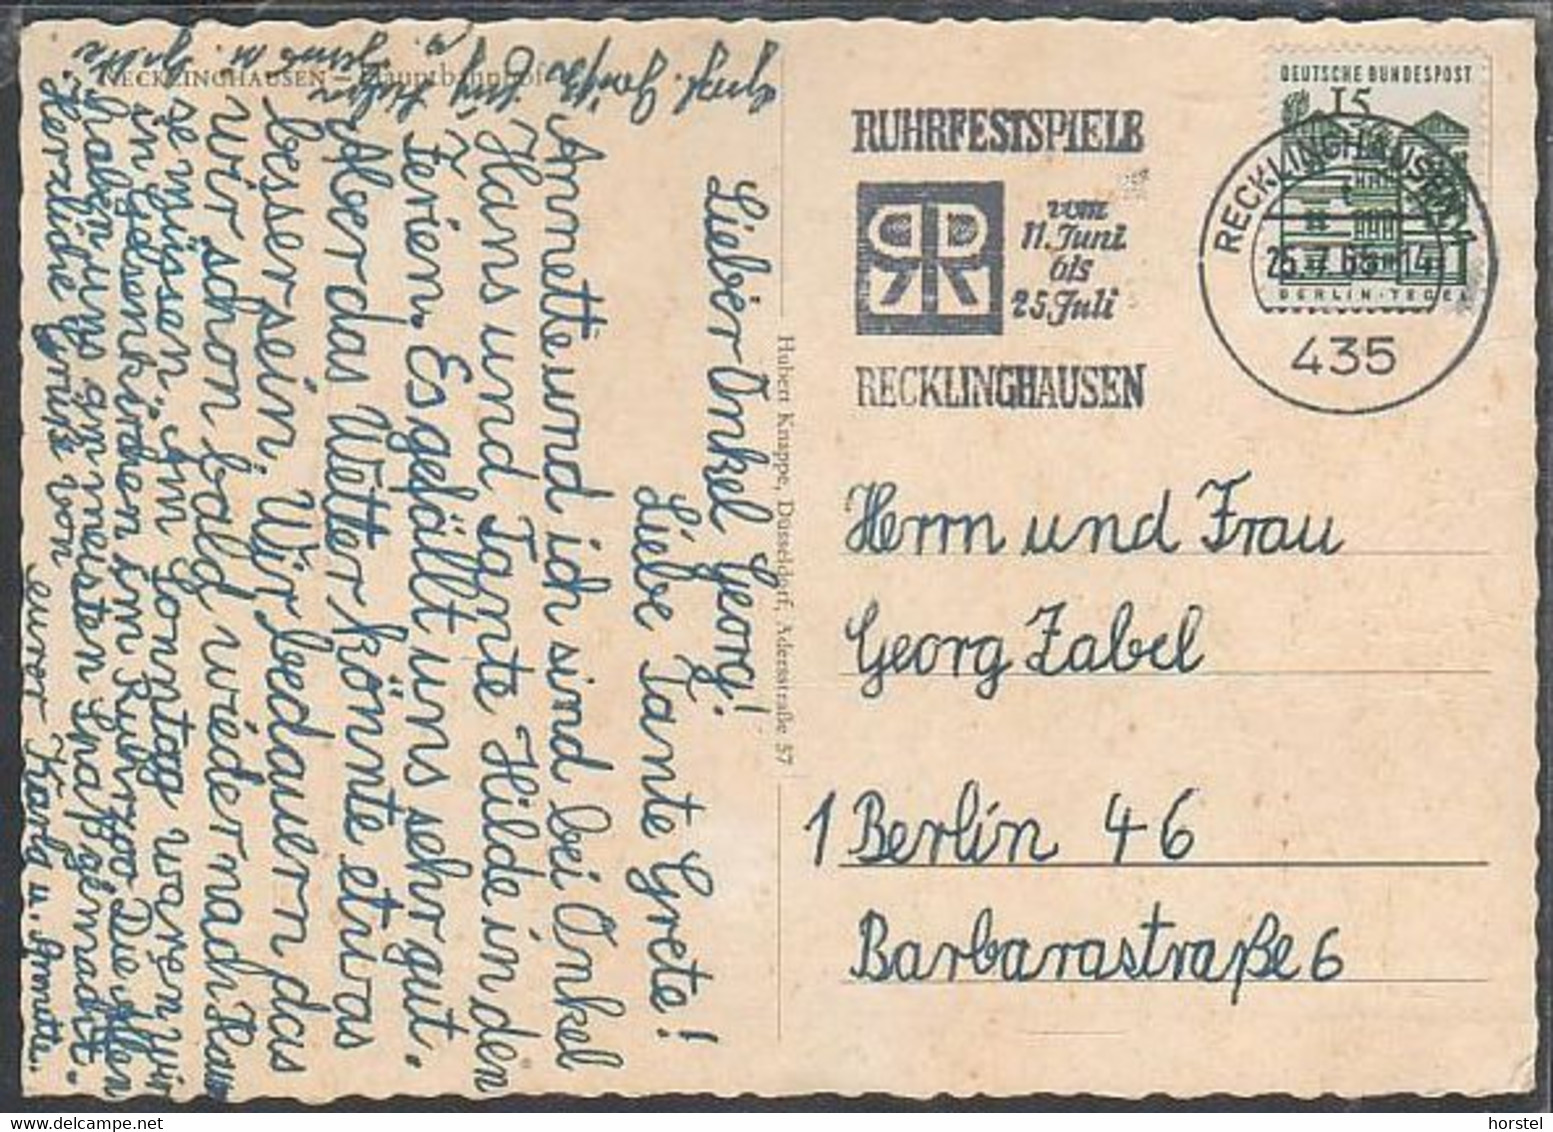 RECKLINGHAUSEN – Hauptbahnhof
Lieber Onkel Georg!
Liebe Tante Grete!
Annette und ich sind bei Onkel
Hans und Tante Hilde in den
Ferien. Es gefällt uns sehr gut.
Aber das Wetter könnte etwas
besser sein. Wir bedauern das
wir schon bald wieder nach Haus
se müssen. Am Sonntag waren wir
in Gelsenkirchen im Ruhrzoo Die Affen
haben uns am meisten Spaß gemacht.
Herzliche Grüße von
eurer Karla u. Annette.
Hubert Knappe, Düsseldorf, Adersstraße 57
RUHRFESTSPIELE
vom
11. Juni
bis
25. Juli
RECKLINGHAUSEN
DEUTSCHE BUNDESPOST
15
BERLIN-TEGEL
RECKLINGHAUSEN 1
25.7.65-14
435
Herrn und Frau
Georg Zabel
1 Berlin 46
Barbarastraße 6
horstel